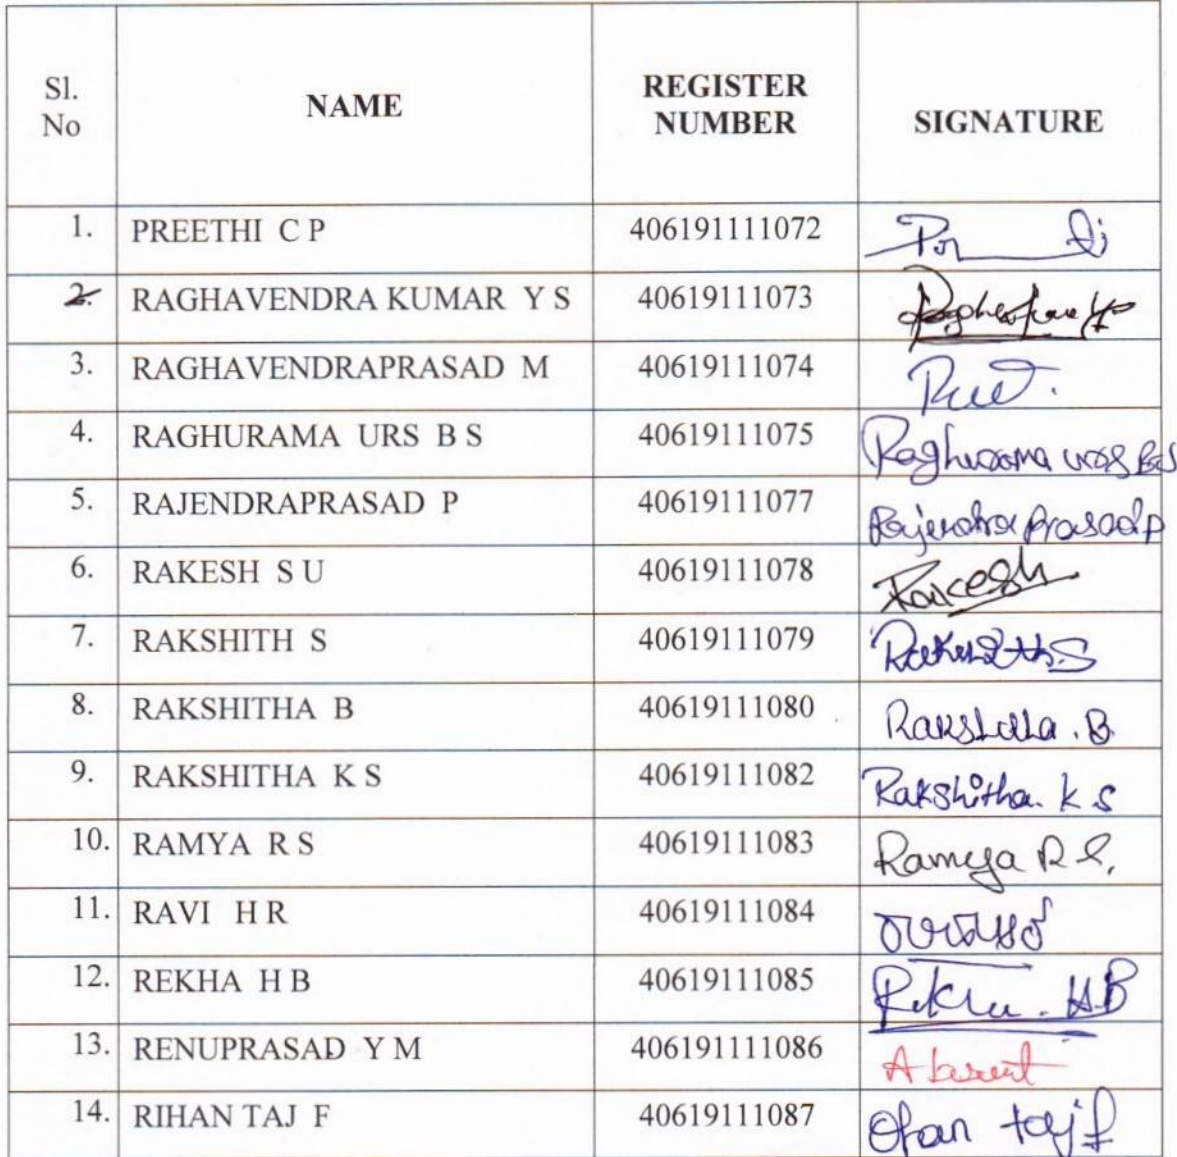 Sl. No NAME REGISTER NUMBER SIGNATURE
1. PREETHI C P 406191111072
2. RAGHAVENDRA KUMAR Y S 40619111073
3. RAGHAVENDRAPRASAD M 40619111074
4. RAGHURAMA URS B S 40619111075 Raghurama urs B S
5. RAJENDRAPRASAD P 40619111077 Rajendra prasad p
6. RAKESH S U 40619111078 Rakesh
7. RAKSHITH S 40619111079 Rakshith.S
8. RAKSHITHA B 40619111080 Rakshitha . B
9. RAKSHITHA K S 40619111082 Rakshitha. k s
10. RAMYA R S 40619111083 Ramya R S.
11. RAVI H R 40619111084
12. REKHA H B 40619111085 Rekha . H B
13. RENUPRASAD Y M 406191111086 Absent
14. RIHAN TAJ F 40619111087 taj f